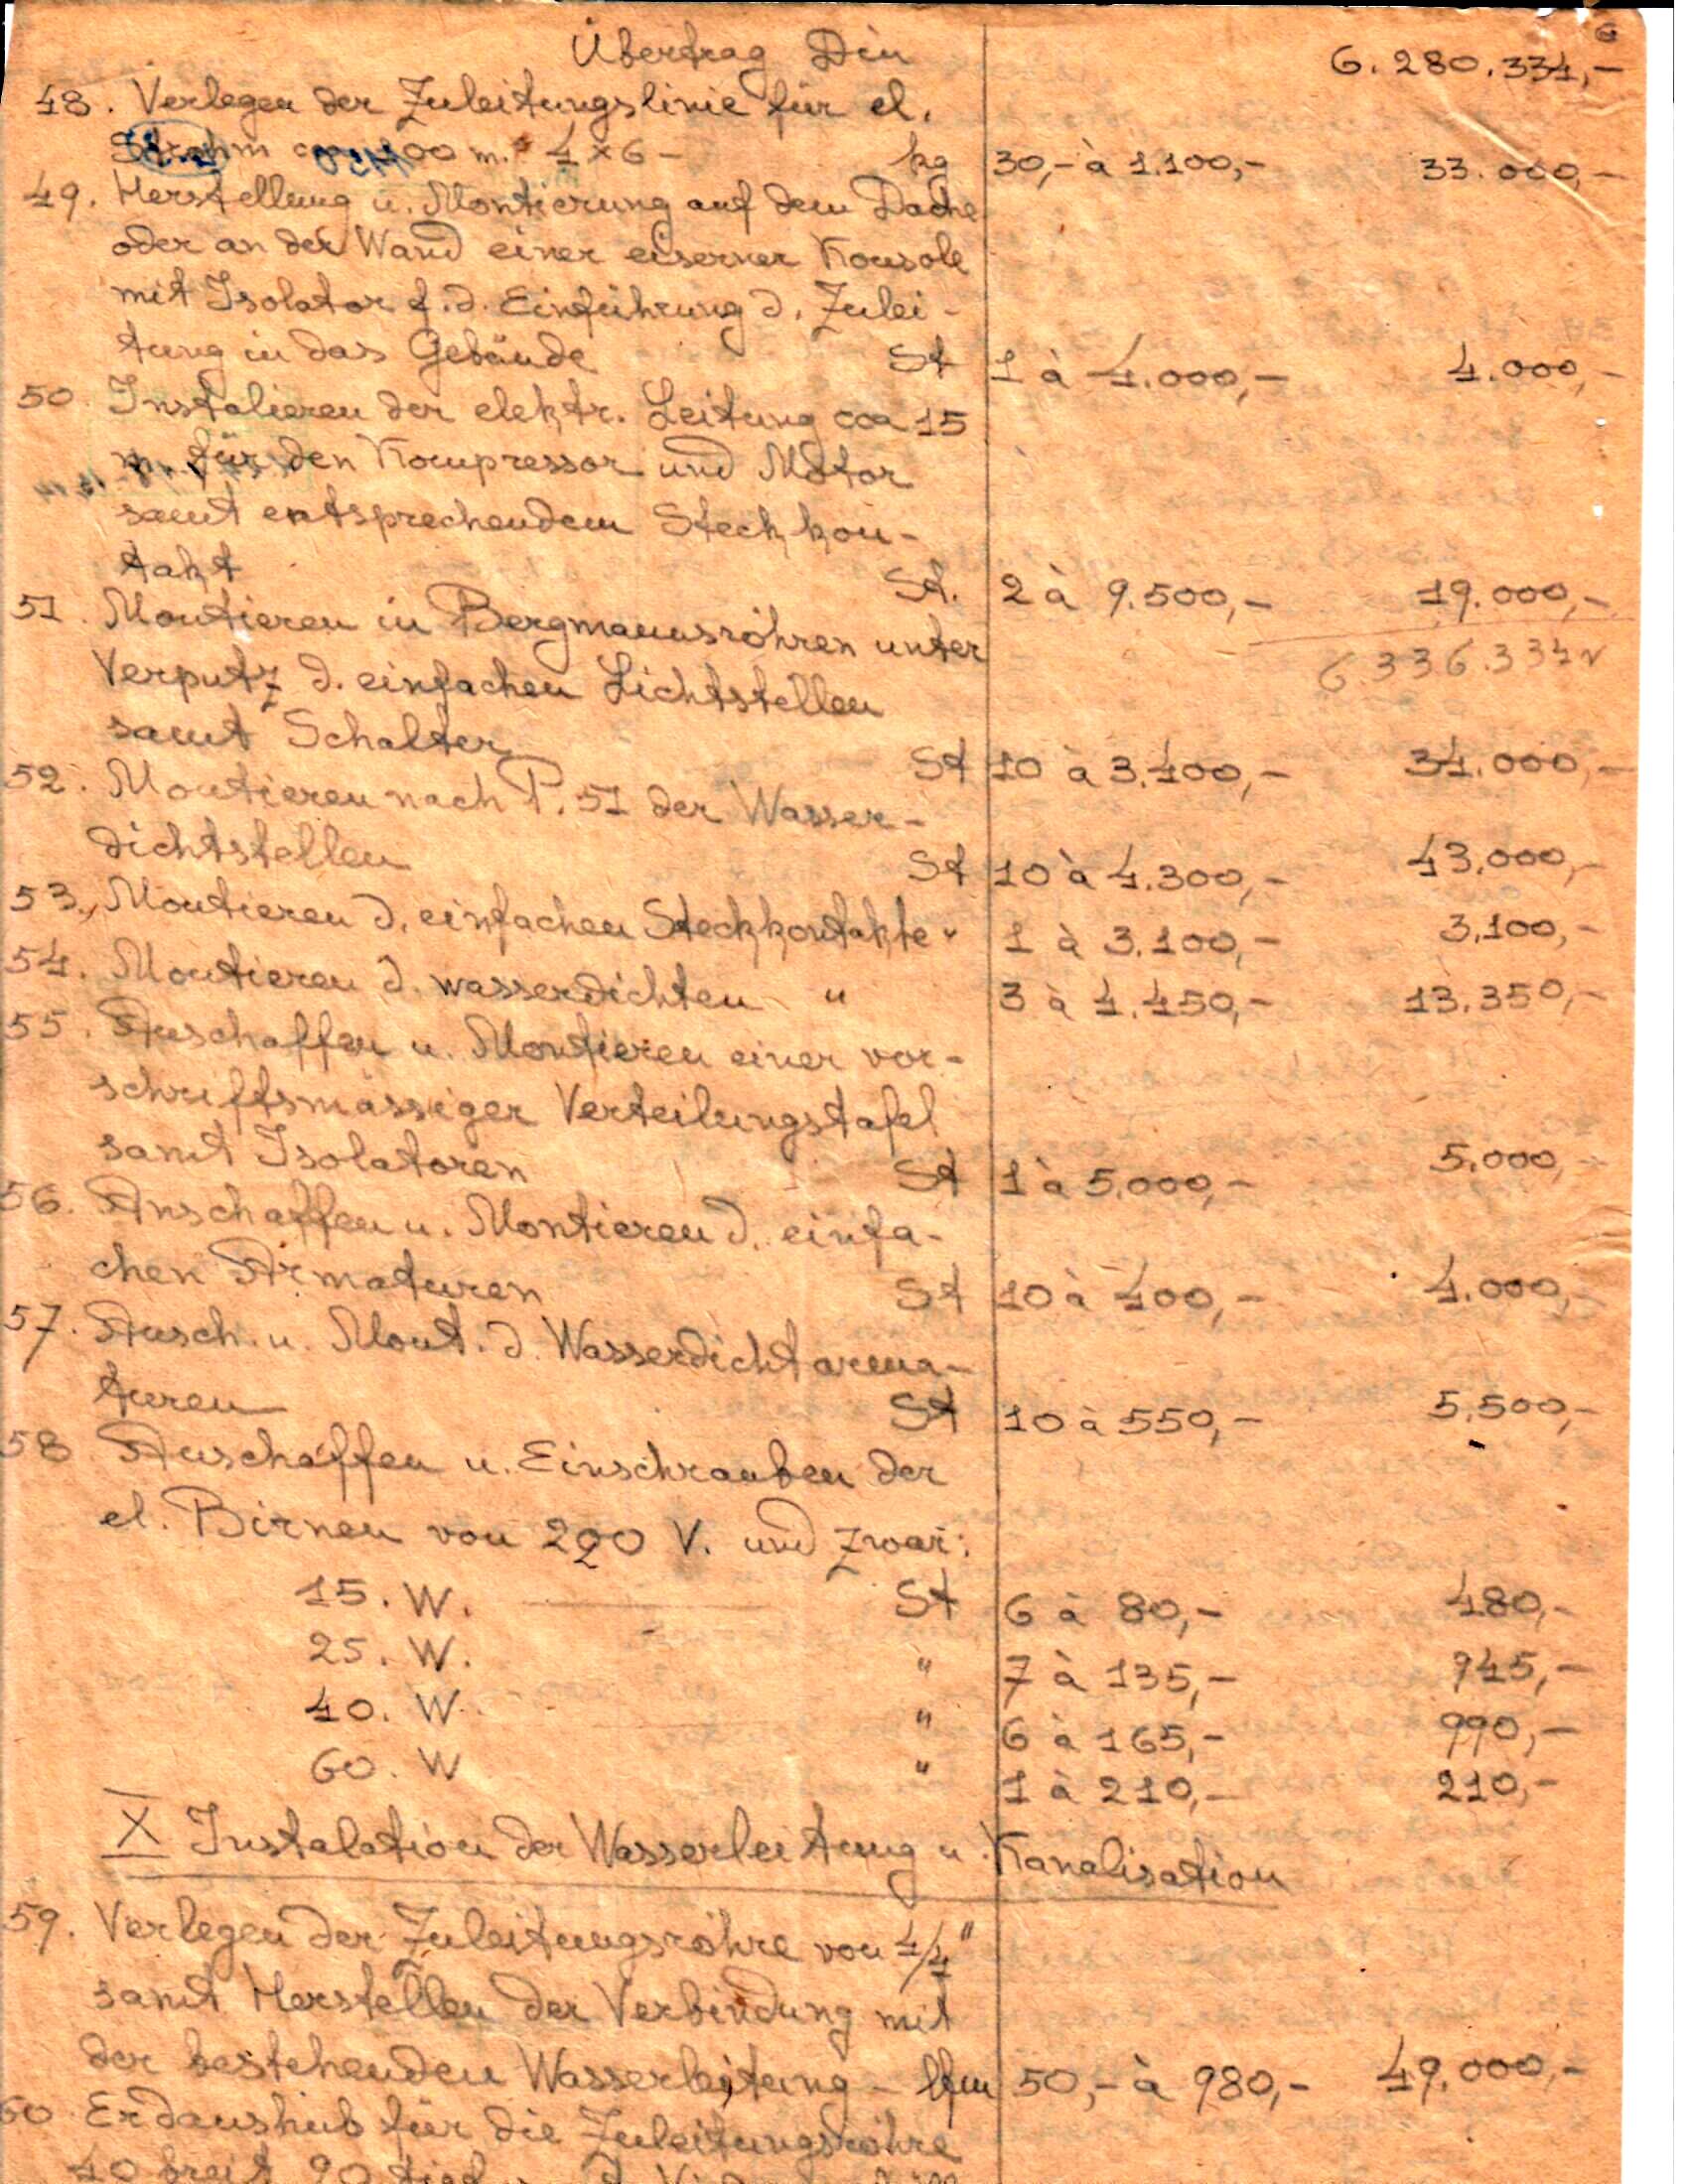 6
Übertrag Din 6.280.334,-
48. Verlegen der Zuleitungslinie für el.
Strohm 100 m. 4×6 - kg 30,- à 1.100,- 33.000,-
49. Herstellung u. Montierung auf dem Dache
oder an der Wand einer eiserner Konsole
mit Isolator f. d. Einführung d. Zulei-
tung in das Gebäude St 1 à 4.000,- 4.000,-
50. Instalieren der elektr. Leitung cca 15
m. für den Kompressor und Motor
samt entsprechendem Steckkon-
takt St. 2 à 9.500,- 19.000,-
6.336.334
51. Montieren in Bergmannsröhren unter
Verputz d. einfachen Lichtstellen
samt Schalter St 10 à 3.400,- 34.000,-
52. Montieren nach P. 51 der Wasser-
dichtstellen St 10 à 4.300,- 43.000,-
53. Montieren d. einfachen Steckkontakte " 1 à 3.100,- 3.100,-
54. Montieren d. wasserdichten " 3 à 4.450,- 13.350,-
55. Anschaffen u. Montieren einer vor-
schriftsmässiger Verteilungstafel
samt Isolatoren St 1 à 5.000,- 5.000,-
56. Anschaffen u. Montieren d. einfa-
chen Armaturen St 10 à 400,- 4.000,-
57. Ansch. u. Mont. d. Wasserdichtarma-
turen St 10 à 550,- 5.500,-
58 Anschaffen u. Einschrauben der
el. Birnen von 220 V. und zwar:
15. W. St 6 à 80,- 480,-
25. W. " 7 à 135,- 945,-
40. W. " 6 à 165,- 990,-
60. W " 1 à 210,- 210,-
X Instalation der Wasserleitung u. Kanalisation
59. Verlegen der Zuleitungsröhre von 4/4"
samt Herstellen der Verbindung mit
der bestehenden Wasserleitung - lfm 50,- à 980,- 49.000,-
60. Erdaushub für die Zuleitungsröhre
40 breit 90 tief